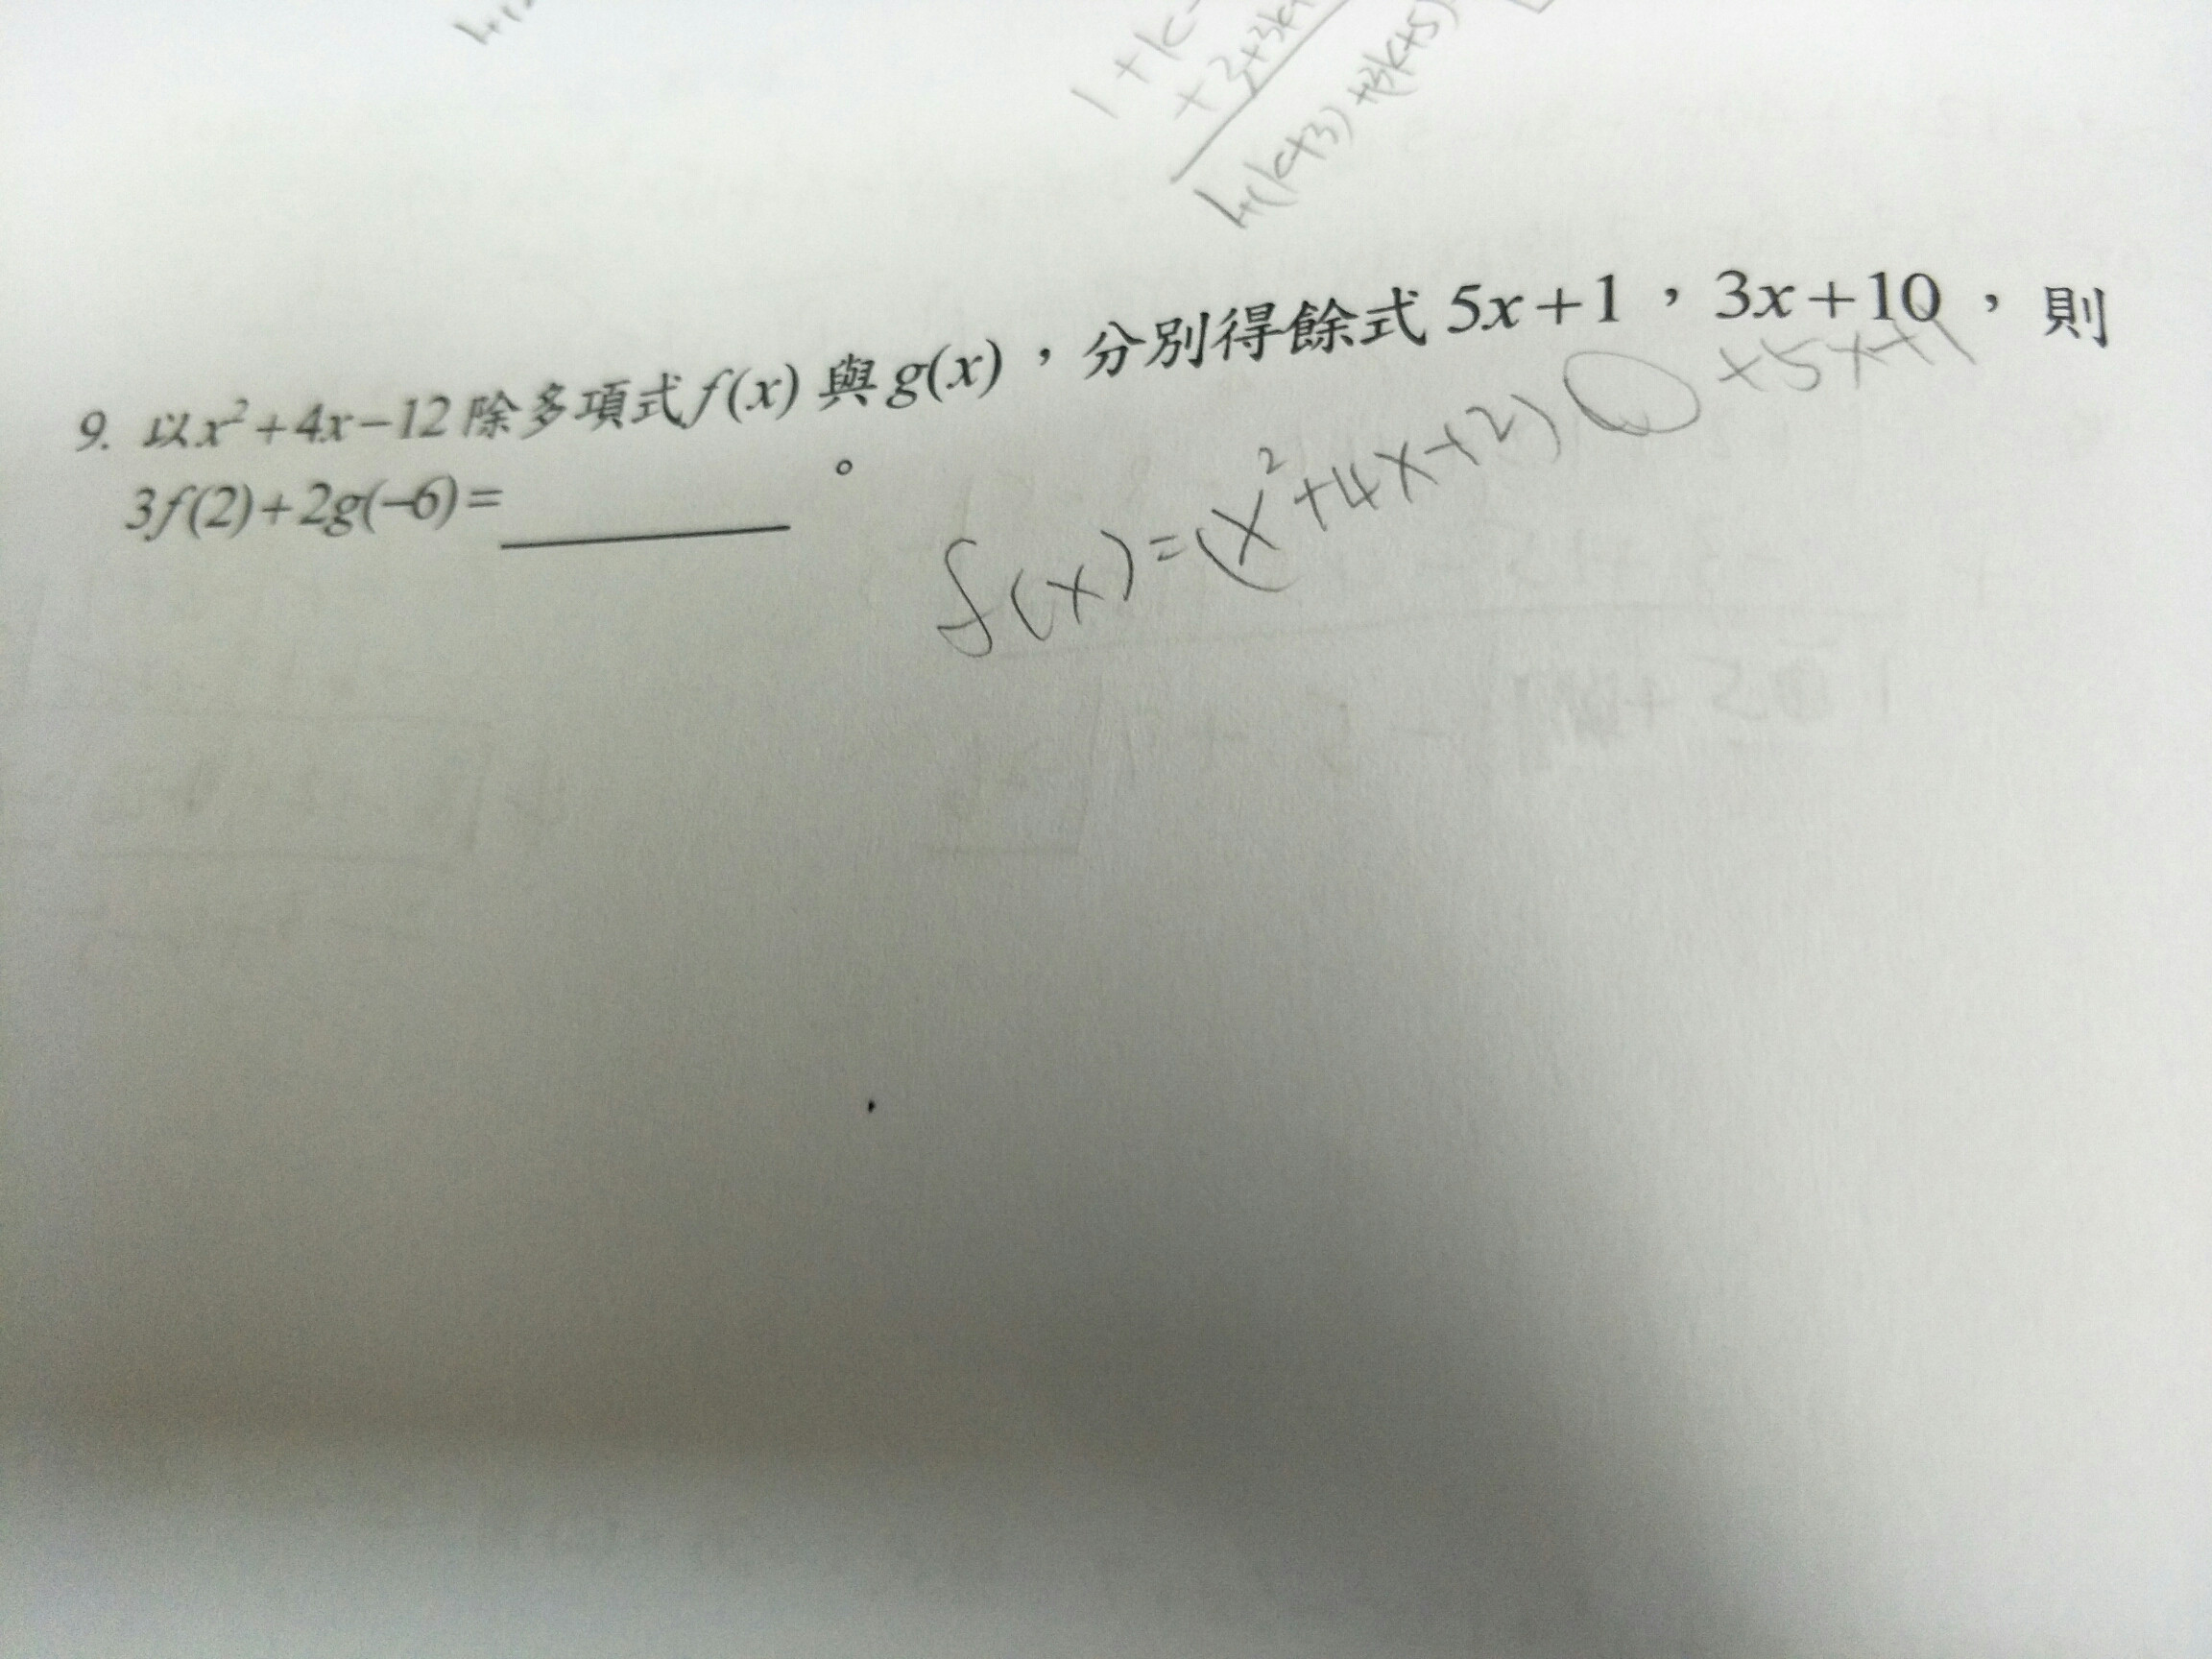 1+k-
+3+3k+
1+(k+3)+(3k+5)
9. 以x²+4x−12除多項式f(x)與g(x)，分別得餘式5x+1，3x+10，則
3f(2)+2g(−6)=________。
f(x)=(x²+4x-12) +5x+1